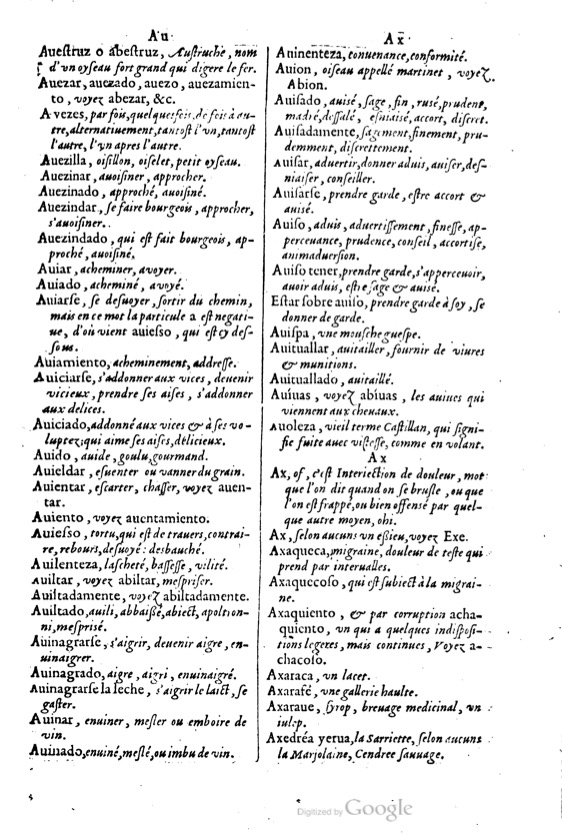 Au
Auestruz o abestruz, Austruche, nom
d'vn oyseau fort grand qui digere le fer.
Auezar, auezado, auezo, auezamien-
to, voyez abezar, &c.
A vezes, par fois, quelquesfois, de fois à au-
tre, alternatiuement, tantost l'vn, tantost
l'autre, l'vn apres l'autre.
Auezilla, oisillon, oiselet, petit oyseau.
Auezinar, auoisiner, approcher.
Auezinado, approché, auoisiné.
Auezindar, se faire bourgeois, approcher,
s'auoisiner.
Auezindado, qui est fait bourgeois, ap-
proché, auoisiné.
Auiar, acheminer, avoyer.
Auiado, acheminé, avoyé.
Auiarse, se desuoyer, sortir du chemin,
mais en ce mot la particule a est negati-
ue, d'où vient auiesso, qui est cy des-
sous.
Auiamiento, acheminement, addresse.
Auiciarse, s'addonner aux vices, deuenir
vicieux, prendre ses aises, s'addonner
aux delices.
Auiciado, addonné aux vices & à ses vo-
luptez; qui aime ses aises, délicieux.
Auido, auide, goulu, gourmand.
Auieldar, esuenter ou vanner du grain.
Auientar, escarter, chasser, voyez auen-
tar.
Auiento, voyez auentamiento.
Auiesso, tortu, qui est de trauers, contrai-
re, rebours, desuoyé: desbauché.
Auilenteza, lascheté, bassesse, vilité.
Auiltar, voyez abiltar, mespriser.
Auiltadamente, voyez abiltadamente.
Auiltado, auili, abbaissé, abiect, apoltron-
ni, mesprisé.
Auinagrarse, s'aigrir, deuenir aigre, en-
uinaigrer.
Auinagrado, aigre, aigri, enuinaigré.
Auinagrarse la leche, s'aigrir le laict, se
gaster.
Auinar, enuiner, mesler ou emboire de
vin.
Auinado, enuiné, meslé, ou imbu de vin.
Ax
Auinenteza, conuenance, conformité.
Auion, oiseau appellé martinet, voyez
Abion.
Auisado, auisé, sage, fin, rusé, prudent,
madré, dessalé, esniaisé, accort, discret.
Auisadamente, sagement, finement, pru-
demment, discrettement.
Auisar, aduertir, donner aduis, auiser, des-
niaiser, conseiller.
Auisarse, prendre garde, estre accort &
auisé.
Auiso, aduis, aduertissement, finesse, ap-
perceuance, prudence, conseil, accortise,
animaduersion.
Auiso tener, prendre garde, s'apperceuoir,
auoir aduis, estre sage & auisé.
Estar sobre auiso, prendre garde à soy, se
donner de garde.
Auispa, vne mousche guespe.
Auituallar, auitailler, fournir de viures
& munitions.
Auituallado, auitaillé.
Auiuas, voyez abiuas, les auiues qui
viennent aux cheuaux.
Auoleza, vieil terme Castillan, qui signi-
fie fuite auec vistesse, comme en volant.
Ax
Ax, of, c'est Interiection de douleur, mot
que l'on dit quand on se brusle, ou que
l'on est frappé, ou bien offensé par quel-
que autre moyen, ohi.
Ax, selon aucuns vn essieu, voyez Exe.
Axaqueca, migraine, douleur de teste qui
prend par interualles.
Axaquecoso, qui est subiect à la migrai-
ne.
Axaquiento, & par corruption acha-
quiento, vn qui a quelques indisposi-
tions legeres, mais continues, Voyez a-
chacoso.
Axaraca, vn lacet.
Axarafé, vne gallerie haulte.
Axaraue, syrop, breuage medicinal, vn
iulep.
Axedréa yerua, la Sarriette, selon aucuns
la Marjolaine, Cendree sauuage.
Digitized by Google